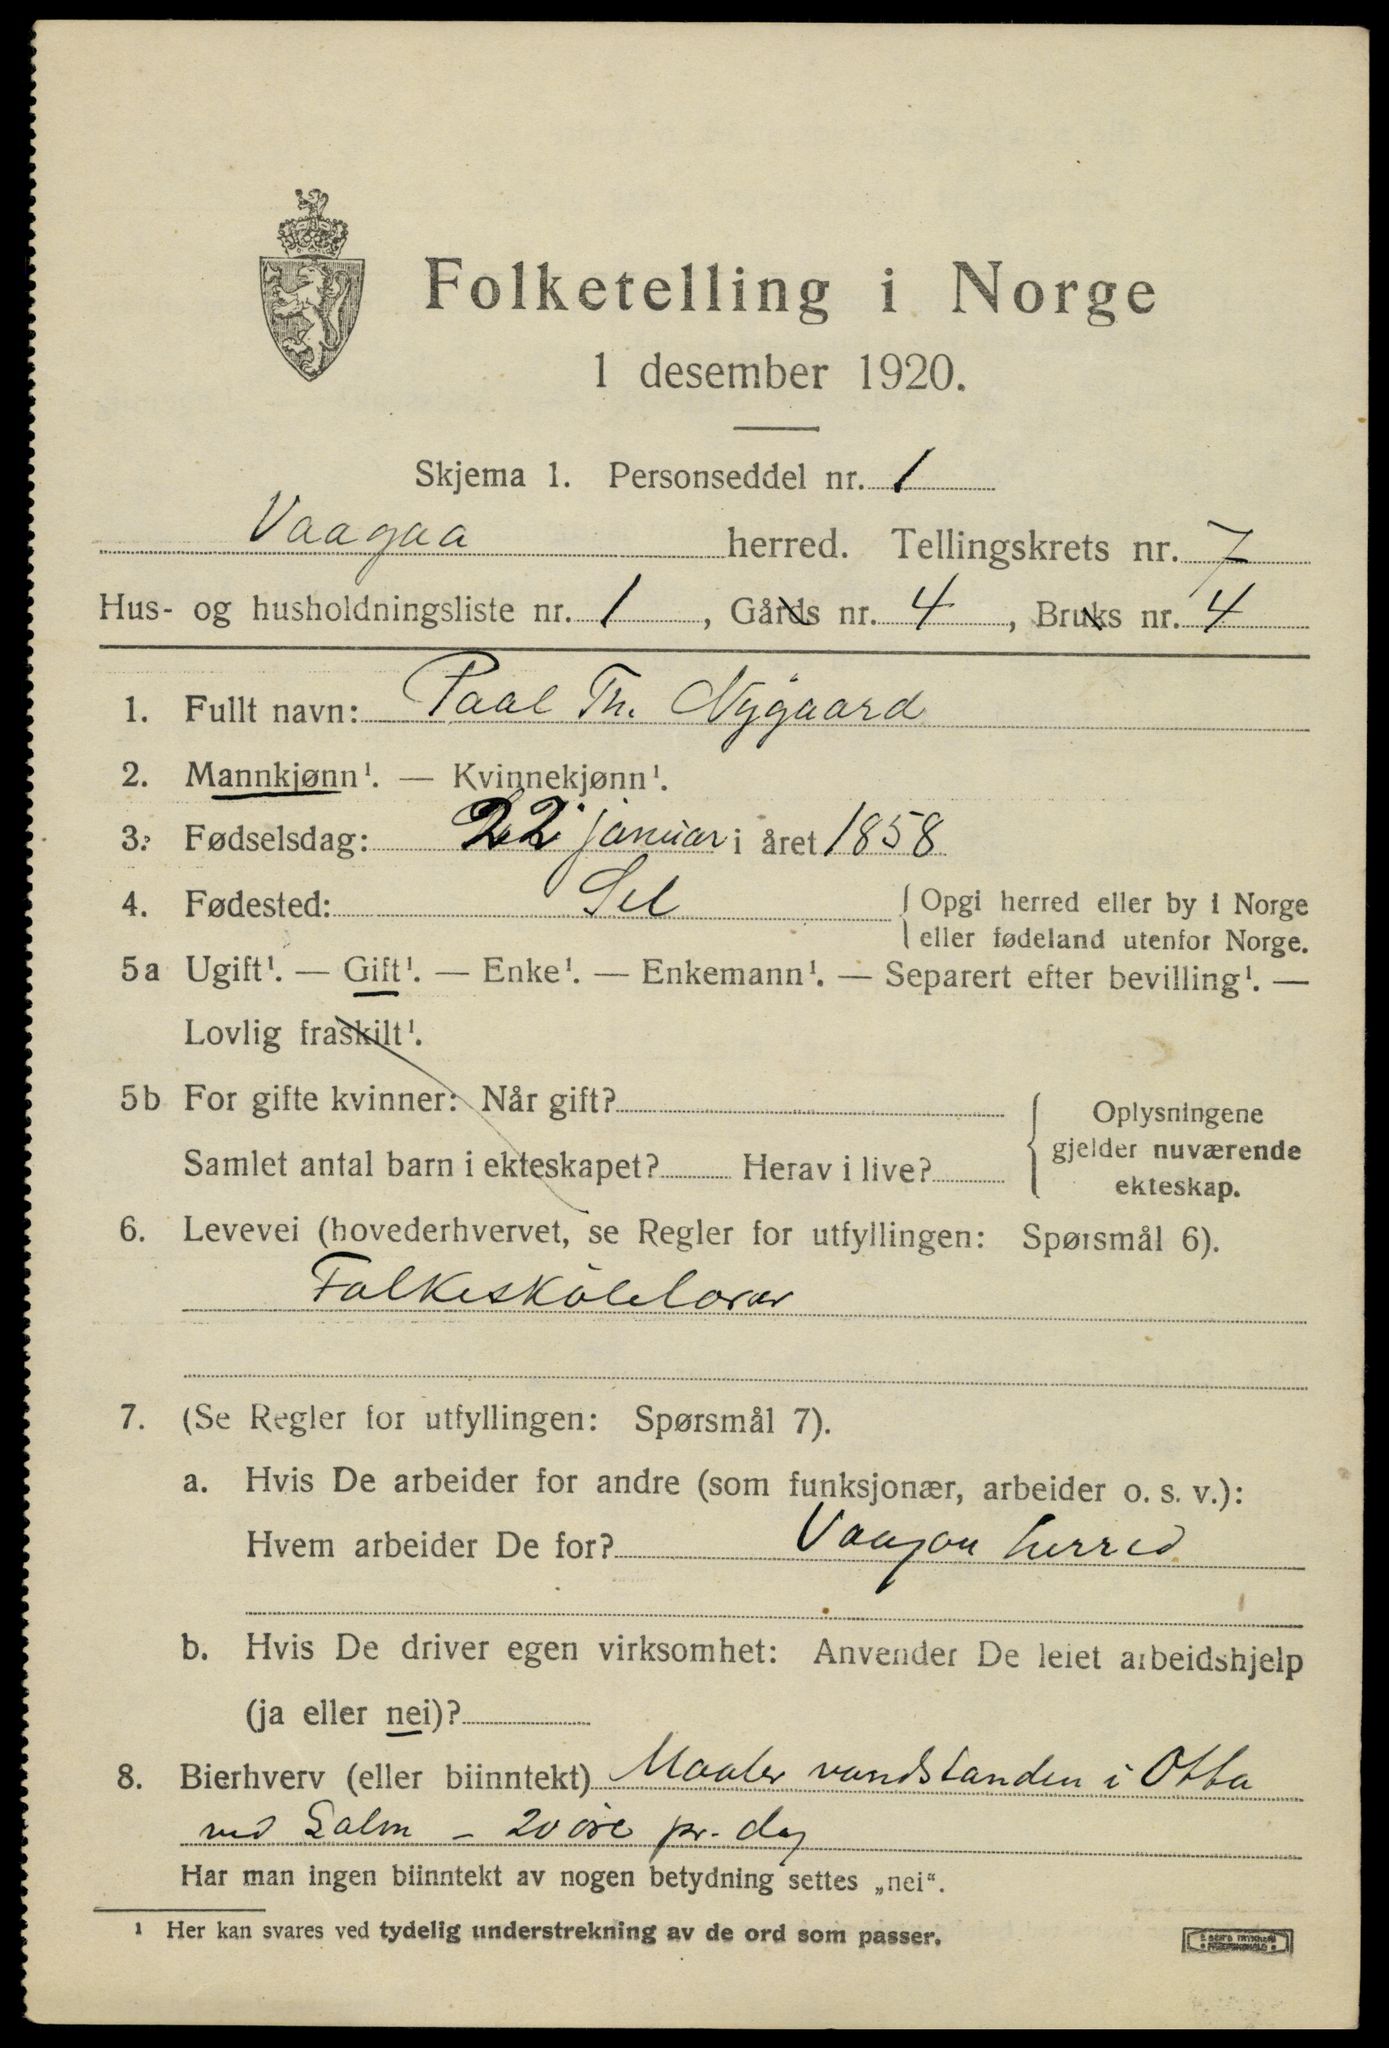 Folketelling i Norge
1 desember 1920.
Skjema 1. Personseddel nr. 1
Vaagaa herred. Tellingskrets nr. 7
Hus- og husholdningsliste nr. 1, Gårds nr. 4, Bruks nr. 4
1. Fullt navn: Paal Th. Nygaard
2. Mannkjønn¹. — Kvinnekjønn¹.
3. Fødselsdag: 22 januar i året 1858
4. Fødested: Sel { Opgi herred eller by i Norge
eller fødeland utenfor Norge.
5a Ugift¹. — Gift¹. — Enke¹. — Enkemann¹. — Separert efter bevilling¹. —
Lovlig fraskilt¹.
5b For gifte kvinner: Når gift?
Samlet antal barn i ekteskapet? Herav i live?
Oplysningene
gjelder nuværende
ekteskap.
6. Levevei (hovederhvervet, se Regler for utfyllingen: Spørsmål 6).
Folkeskolelærer
7. (Se Regler for utfyllingen: Spørsmål 7).
a. Hvis De arbeider for andre (som funksjonær, arbeider o. s. v.):
Hvem arbeider De for? Vaagaa herred
b. Hvis De driver egen virksomhet: Anvender De leiet arbeidshjelp
(ja eller nei)?
8. Bierhverv (eller biinntekt) Maaler vandstanden i Otta
ved Lalm – 20 öre pr. dag
Har man ingen biinntekt av nogen betydning settes „nei“.
¹ Her kan svares ved tydelig understrekning av de ord som passer.